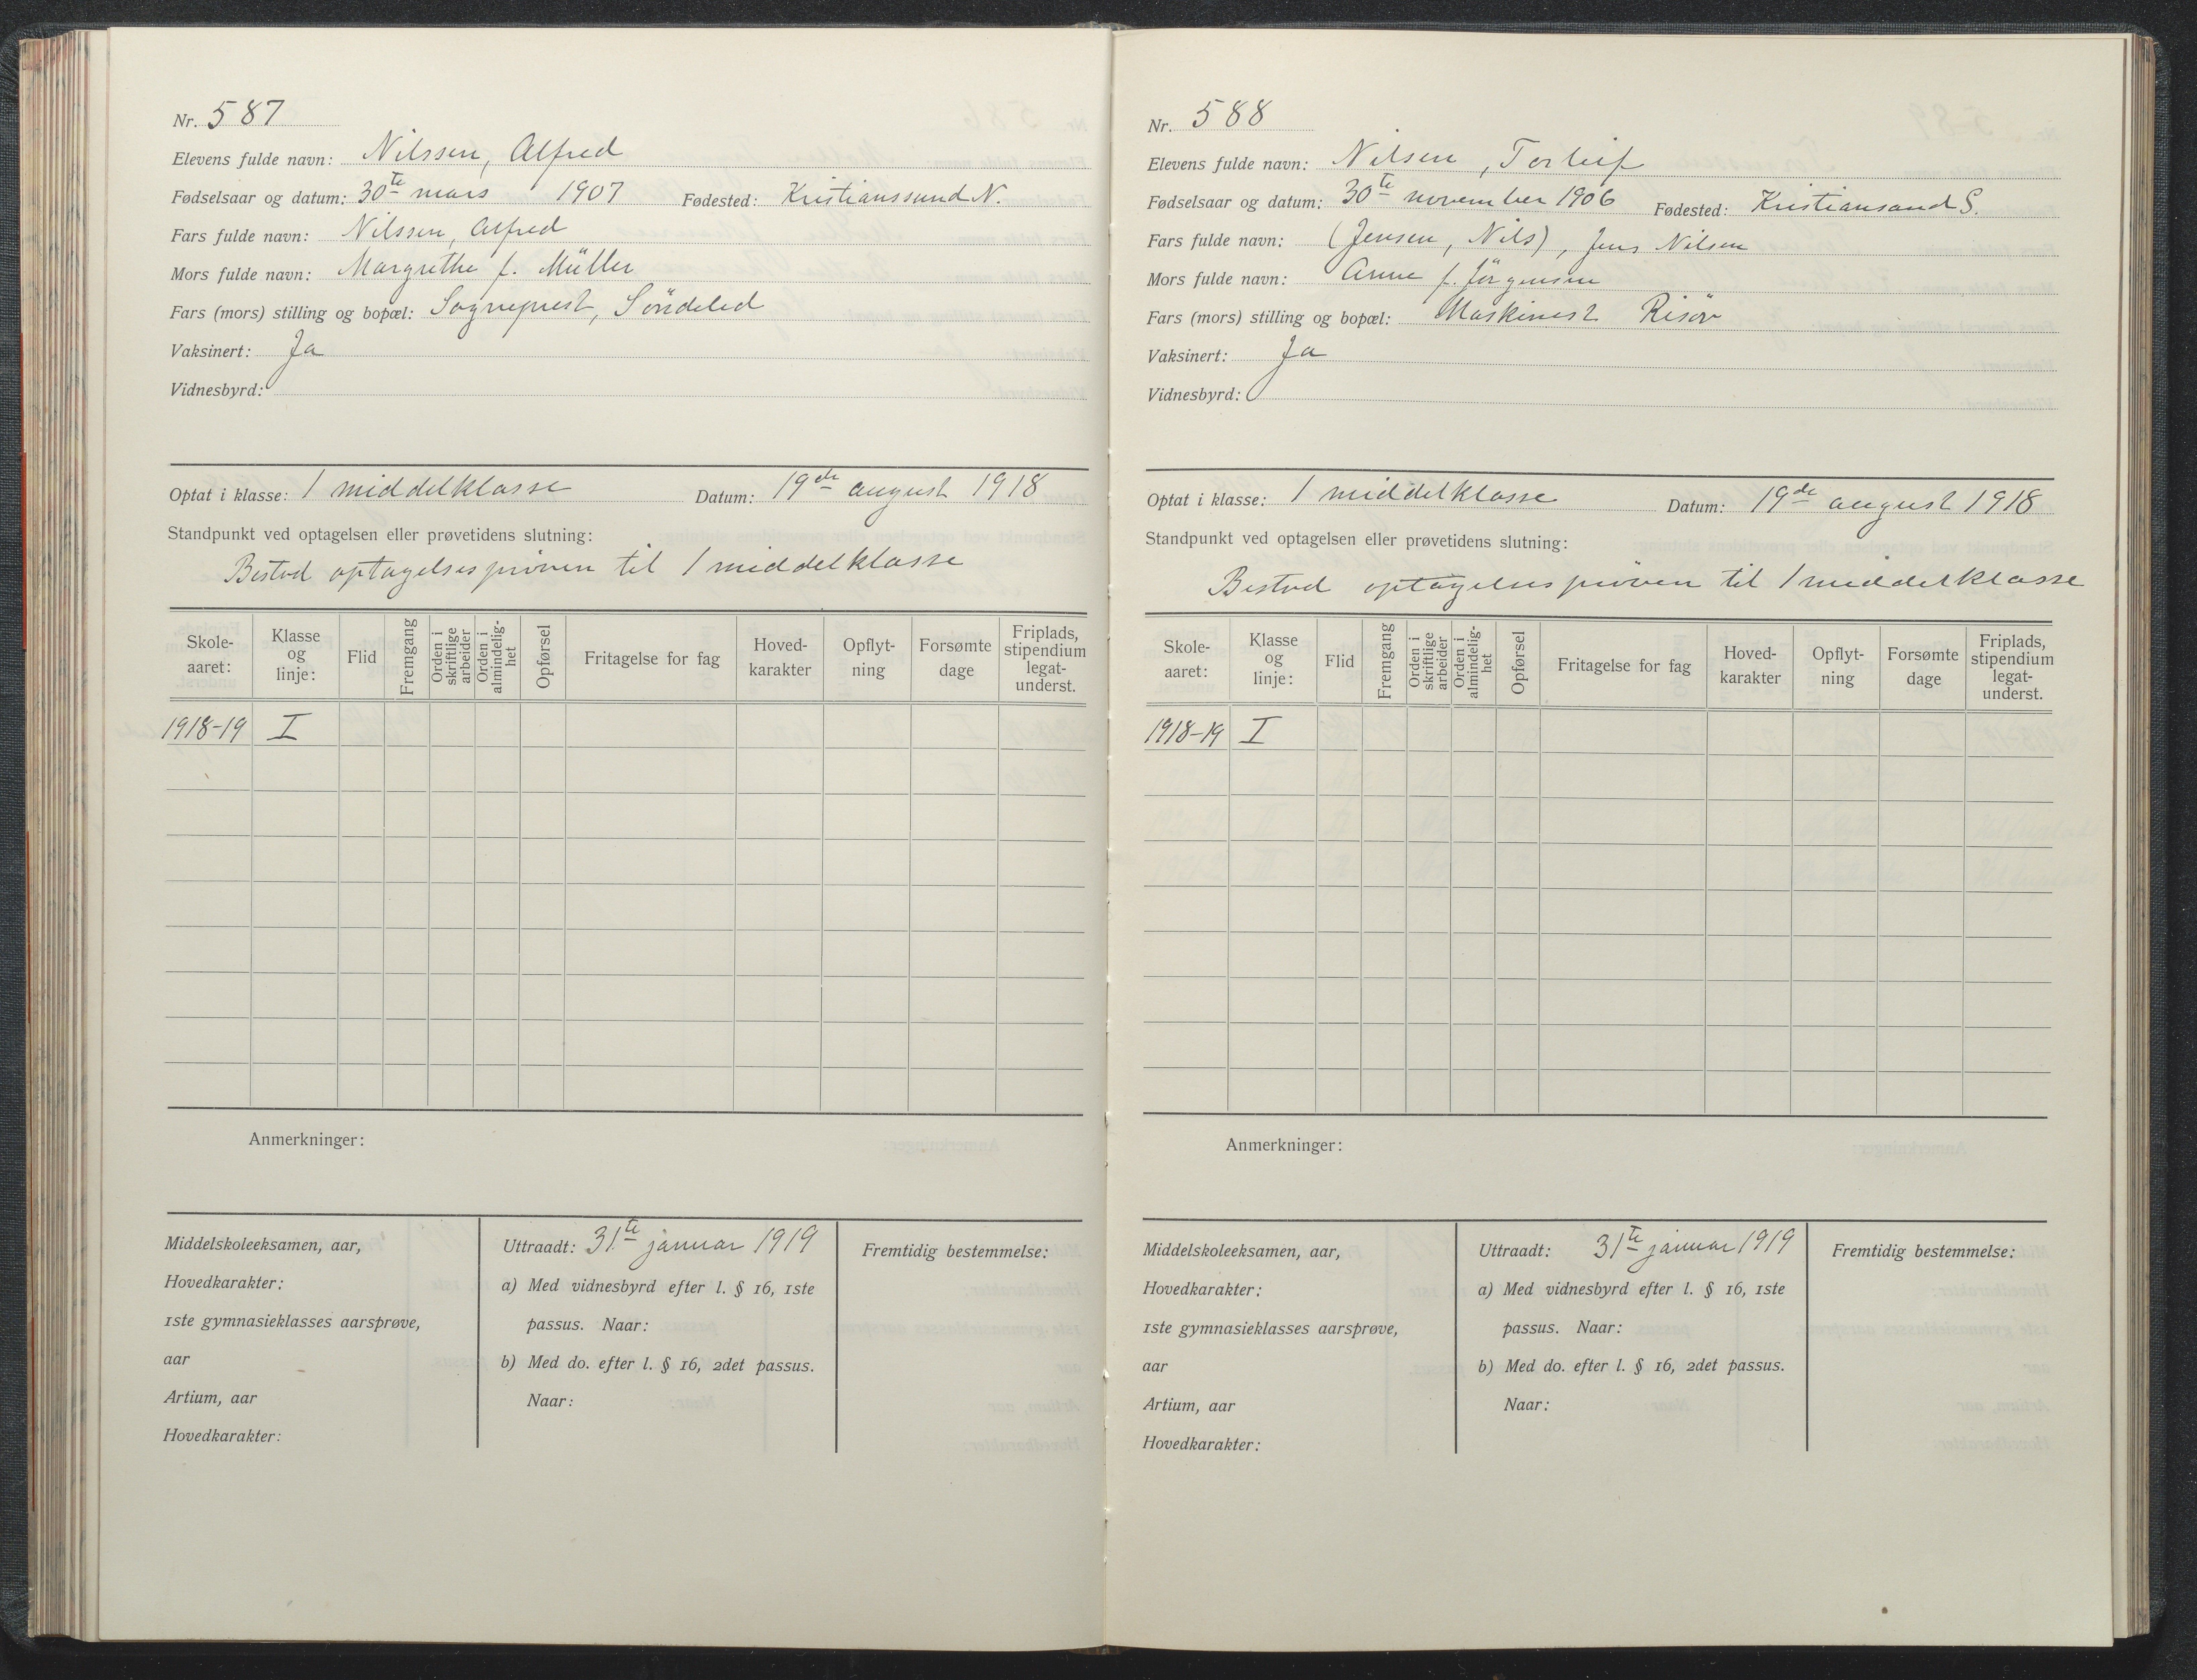 Nr. 587
Elevens fulde navn: Nilssen, Alfred
Fødselsaar og datum: 30te mars 1907 Fødested: Kristianssund N.
Fars fulde navn: Nilssen, Alfred
Mors fulde navn: Margrethe f. Müller
Fars (mors) stilling og bopæl: Sogneprest, Söndeled
Vaksinert: Ja
Vidnesbyrd:
Optat i klasse: 1 middelklasse Datum: 19de august 1918
Standpunkt ved optagelsen eller prøvetidens slutning:
Bestod optagelsespröven til 1 middelklasse
Skole-aaret: Klasse og linje: Flid Fremgang Orden i skriftlige arbeider Orden i almindelig-het Opførsel Fritagelse for fag Hoved-karakter Opflyt-ning Forsømte dage Friplads, stipendium legat-underst.
1918-19 I
Anmerkninger:
Middelskoleeksamen, aar,
Hovedkarakter:
1ste gymnasieklasses aarsprøve,
aar
Artium, aar
Hovedkarakter:
Uttraadt: 31te januar 1919
a) Med vidnesbyrd efter l. § 16, 1ste
passus. Naar:
b) Med do. efter l. § 16, 2det passus.
Naar:
Fremtidig bestemmelse:
Nr. 588
Elevens fulde navn: Nilsen, Torleif
Fødselsaar og datum: 30te november 1906 Fødested: Kristiansand S.
Fars fulde navn: (Jensen, Nils), Jens Nilsen
Mors fulde navn: Anne f. Jörgensen
Fars (mors) stilling og bopæl: Maskinist Risör
Vaksinert: Ja
Vidnesbyrd:
Optat i klasse: 1 middelklasse Datum: 19de august 1918
Standpunkt ved optagelsen eller prøvetidens slutning:
Bestod optagelsespröven til 1 middelklasse
Skole-aaret: Klasse og linje: Flid Fremgang Orden i skriftlige arbeider Orden i almindelig-het Opførsel Fritagelse for fag Hoved-karakter Opflyt-ning Forsømte dage Friplads, stipendium legat-underst.
1918-19 I
Anmerkninger:
Middelskoleeksamen, aar,
Hovedkarakter:
1ste gymnasieklasses aarsprøve,
aar
Artium, aar
Hovedkarakter:
Uttraadt: 31te januar 1919
a) Med vidnesbyrd efter l. § 16, 1ste
passus. Naar:
b) Med do. efter l. § 16, 2det passus.
Naar:
Fremtidig bestemmelse: